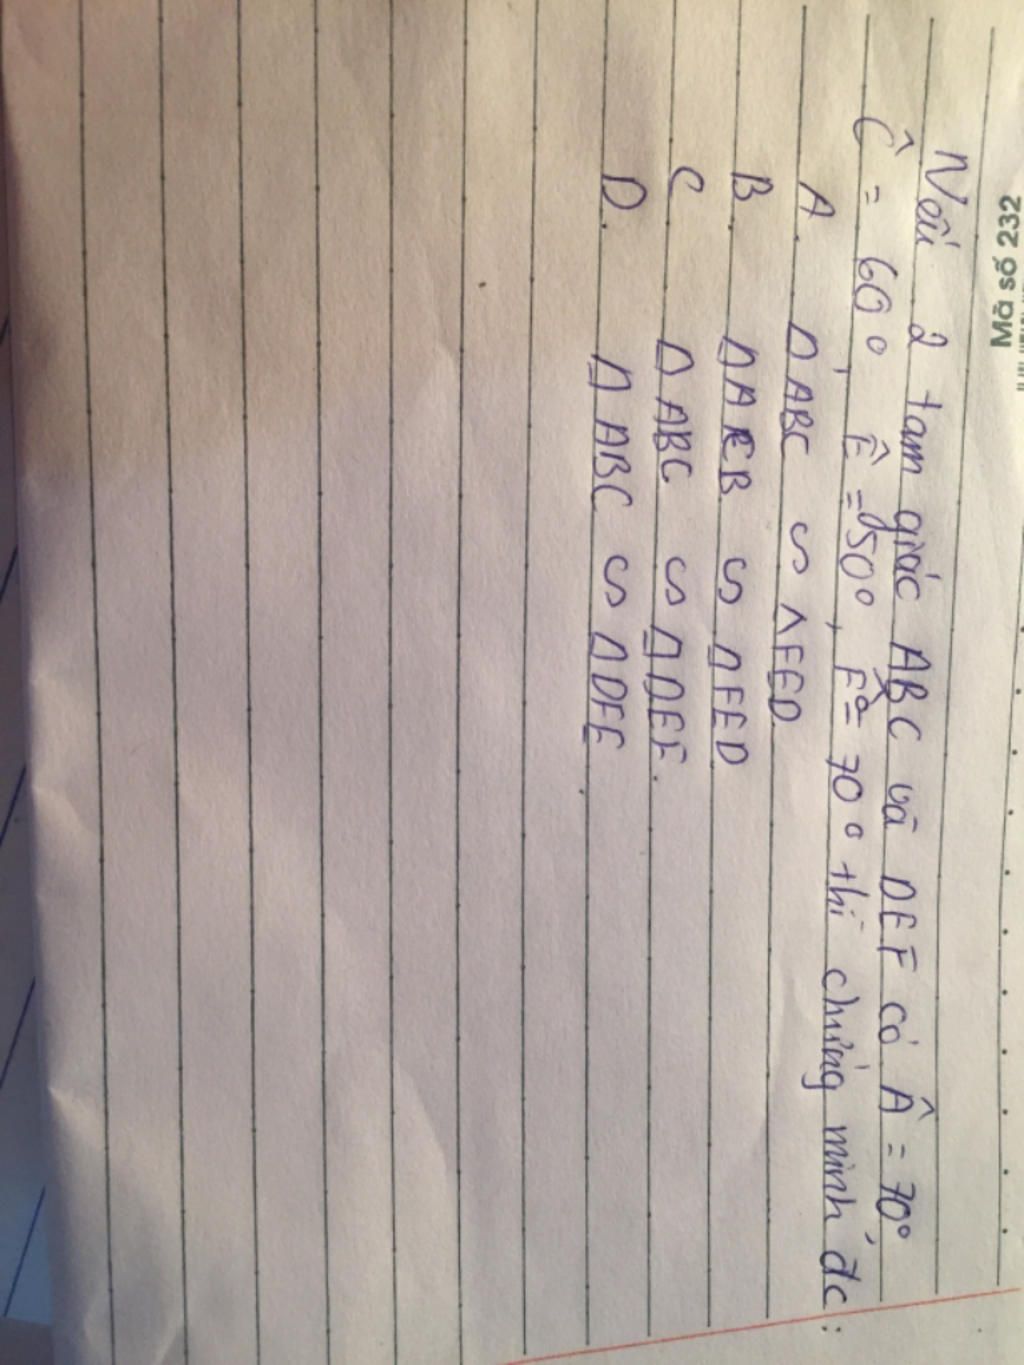 Mã số 232
Nếu 2 tam giác ABC và DEF có Â = 70°,
Ĉ = 60°, Ê = 50°, F̂ = 70° thì chứng minh đc :
A. ΔABC ∽ ΔFED
B. ΔACB ∽ ΔFED
C ΔABC ∽ ΔDEF.
D. ΔABC ∽ ΔDFE